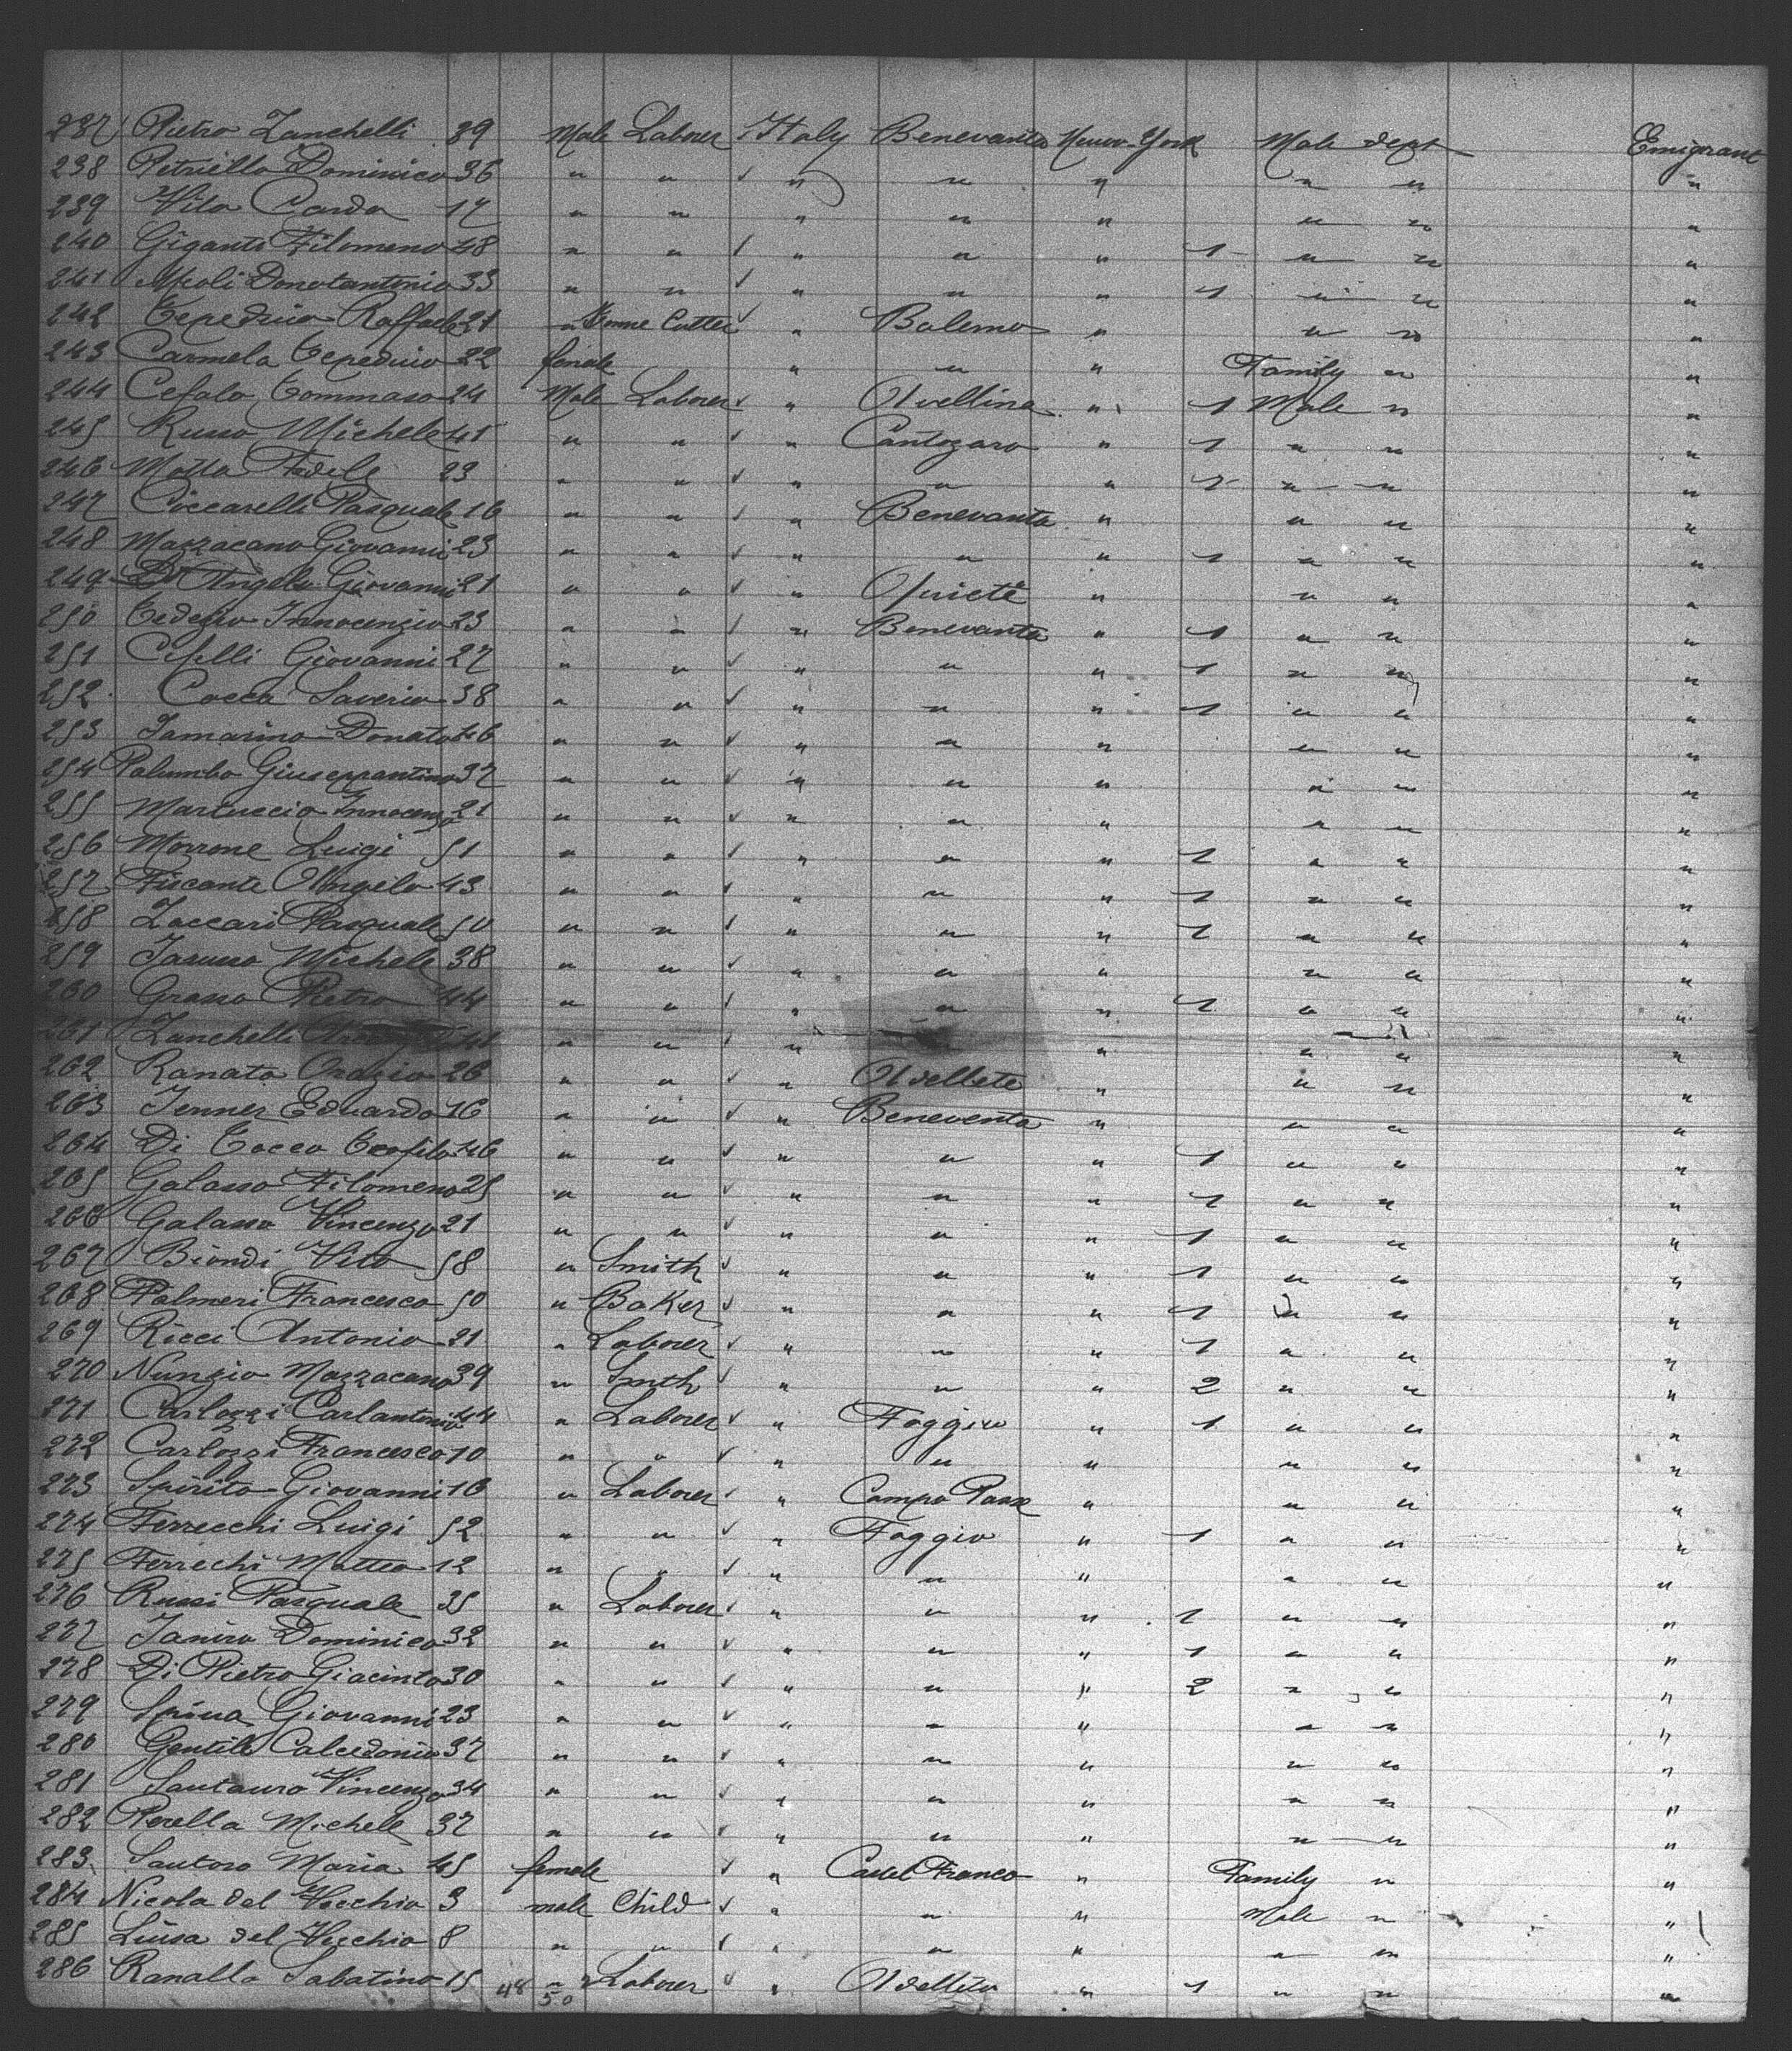 237 Pietro Zanchelli 39 Male Laborer Italy Benevanto New-York Male dept Emigrant
238 Petriello Dominico 36 " " " " " " " "
239 Vito Carda 17 " " " " " " " "
240 Giganti Filomeno 48 " " " " " 1 " " "
241 Meoli Donotantonio 33 " " " " " 1 " " "
242 Tepedino Raffaele 21 " Cutter " " " " "
243 Carmela Tepedino 22 female " " " Family " "
244 Cefalo Tommaso 24 Male Laborer " Avellina " 1 Male " "
245 Russo Michele 45 " " " Cantozaro " 1 " " "
246 Motta Fedele 23 " " " " " 1 " " "
247 Ciccarelli Pasquale 16 " " " Benevanto " " " "
248 Mazzacano Giovanni 23 " " " " " 1 " " "
249 D'Angelo Giovanni 21 " " " " " " "
250 Innocenzio 23 " " " Benevanto " 1 " " "
251 Giovanni 27 " " " " " 1 " " "
252 Cocca Saverio 38 " " " " " 1 " " "
253 Iamarino Donato 46 " " " " " " " "
254 Palumbo Giuseppantino 37 " " " " " " " "
255 Martuccio Innocenzo 21 " " " " " " " "
256 Morrone Luigi 51 " " " " " 1 " " "
257 Fiscante Angelo 43 " " " " " 1 " " "
258 Zaccari Pasquale 50 " " " " " 1 " " "
259 Iarusso Michele 38 " " " " " " " "
260 Grasso Pietro 44 " " " " " 1 " " "
261 Zanchelli " " " " " " "
262 Ranato Orazio 26 " " " Avellete " " " "
263 Jenner Eduardo 16 " " " Benevento " " " "
264 Di Tocco Teofilo 46 " " " " " 1 " " "
265 Galasso Filomeno 25 " " " " " 1 " " "
266 Galasso Vincenzo 21 " " " " " 1 " " "
267 Biondi Vito 58 " Smith " " " 1 " " "
268 Palmeri Francesco 50 " Baker " " " 1 " " "
269 Ricci Antonio 21 " Laborer " " " 1 " " "
270 Nunzio Mazzacano 39 " Smth " " " 2 " " "
271 Carlozzi Carlantonio 44 " Laborer " Foggio " 1 " " "
272 Carlozzi Francesco 10 " " " " " " " "
273 Spirito Giovanni 16 " Laborer " Campo Basse " " " "
274 Ferrecchi Luigi 52 " " " Foggio " 1 " " "
275 Ferrechi Matteo 12 " " " " " " " "
276 Russi Pasquale 35 " Laborer " " " 1 " " "
277 Janiro Dominico 32 " " " " " 1 " " "
278 Di Pietro Giacinto 30 " " " " " 2 " " "
279 Spina Giovanni 23 " " " " " " " "
280 Gentile Calcedonio 37 " " " " " " " "
281 Santauro Vincenzo 34 " " " " " " " "
282 Perella Michele 37 " " " " " " " "
283 Santoro Maria 45 female " Castel Franco " Family " "
284 Nicola del Vecchio 3 male Child " " " Male " "
285 Luisa del Vecchio 8 " " " " " " " "
286 Ranallo Sabatino 15 48 " Laborer " Avellito " 1 " " "
50